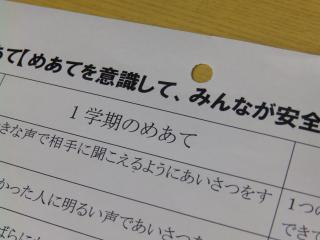 て【めあてを意識して、みんなが安全
1学期のめあて
きな声で相手に聞こえるようにあいさつをす
かった人に明るい声であいさつを
1つの
できて
ばらに